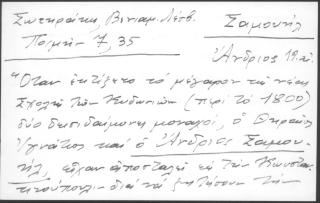 Σωτηράκη, Βενιαμ. Λέσβ. Σαμουήλ
Ποιμήν 7, 35
Ἄνδριος 19 αἰ.
"Ὅταν ἐκτίζετο τὸ μέγαρον τῆς νέας
Σχολῆς τῶν Κυδωνιῶν (περὶ τὸ 1800)
δύο δεισιδαίμονες μοναχοί, ὁ Θηραῖος
Ἰγνάτιος καὶ ὁ Ἄνδριος Σαμου-
ήλ, εἶχον ἀποσταλεῖ εἰς τὴν Κωνσταν-
τινούπολιν διὰ νὰ ζητήσουν τὴν